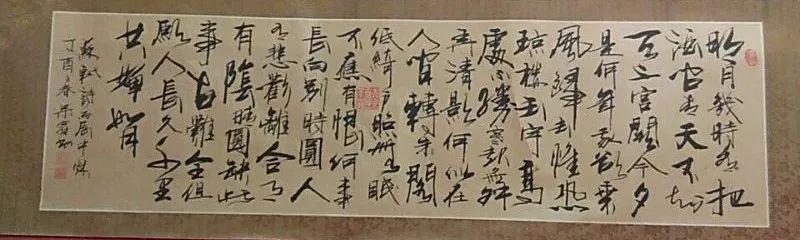 明月幾時有把
酒问青天不知
天上宫闕今夕
是何年我欲乘
風歸去惟恐
琼楼玉宇高
處不勝寒起舞
弄清影何似在
人间轉朱閣
低綺户照無眠
不應有恨何事
長向别時圓人
有悲歡離合月
有陰晴圆缺此
事古難全但
願人長久千里
共嬋娟
蘇軾詩丙辰中秋
丁酉春